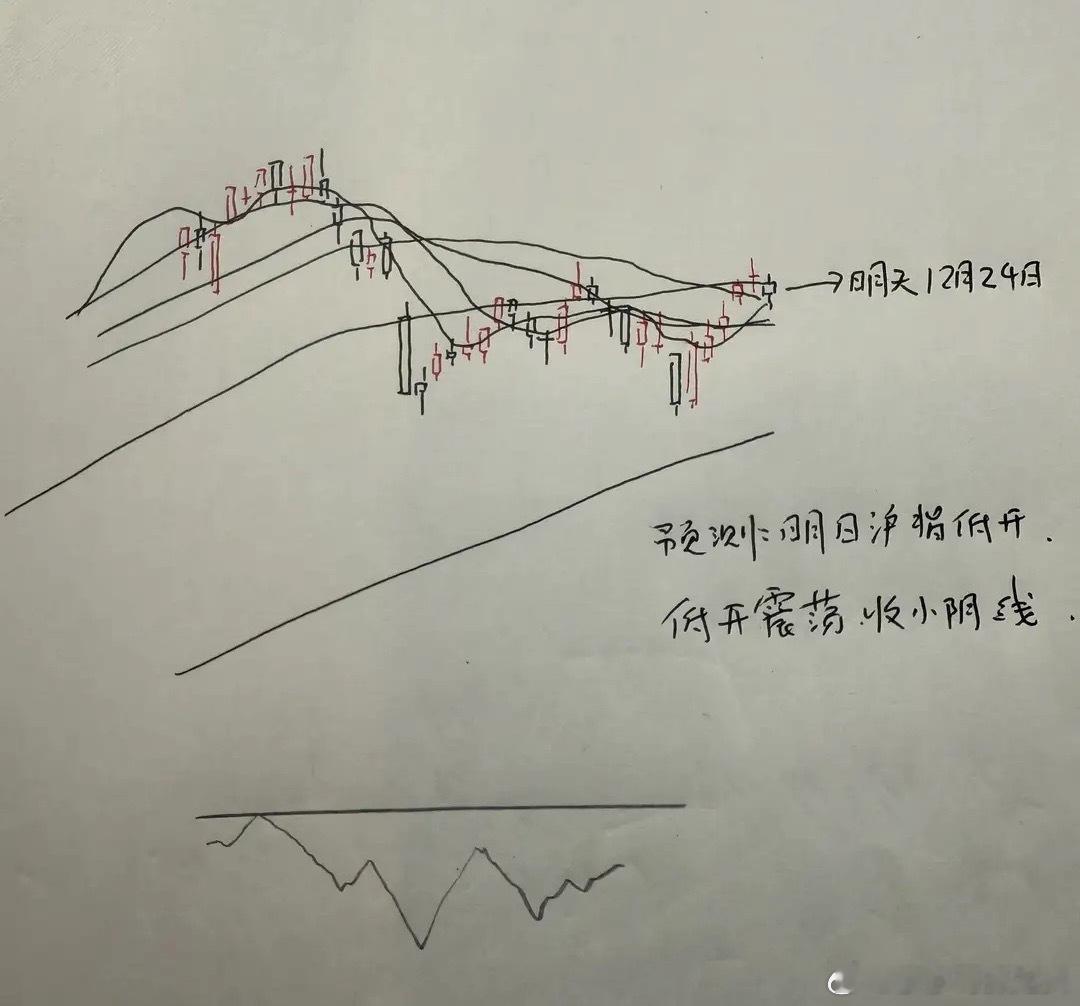 明天12月24日
预测：明日沪指低开.
低开震荡.收小阴线.